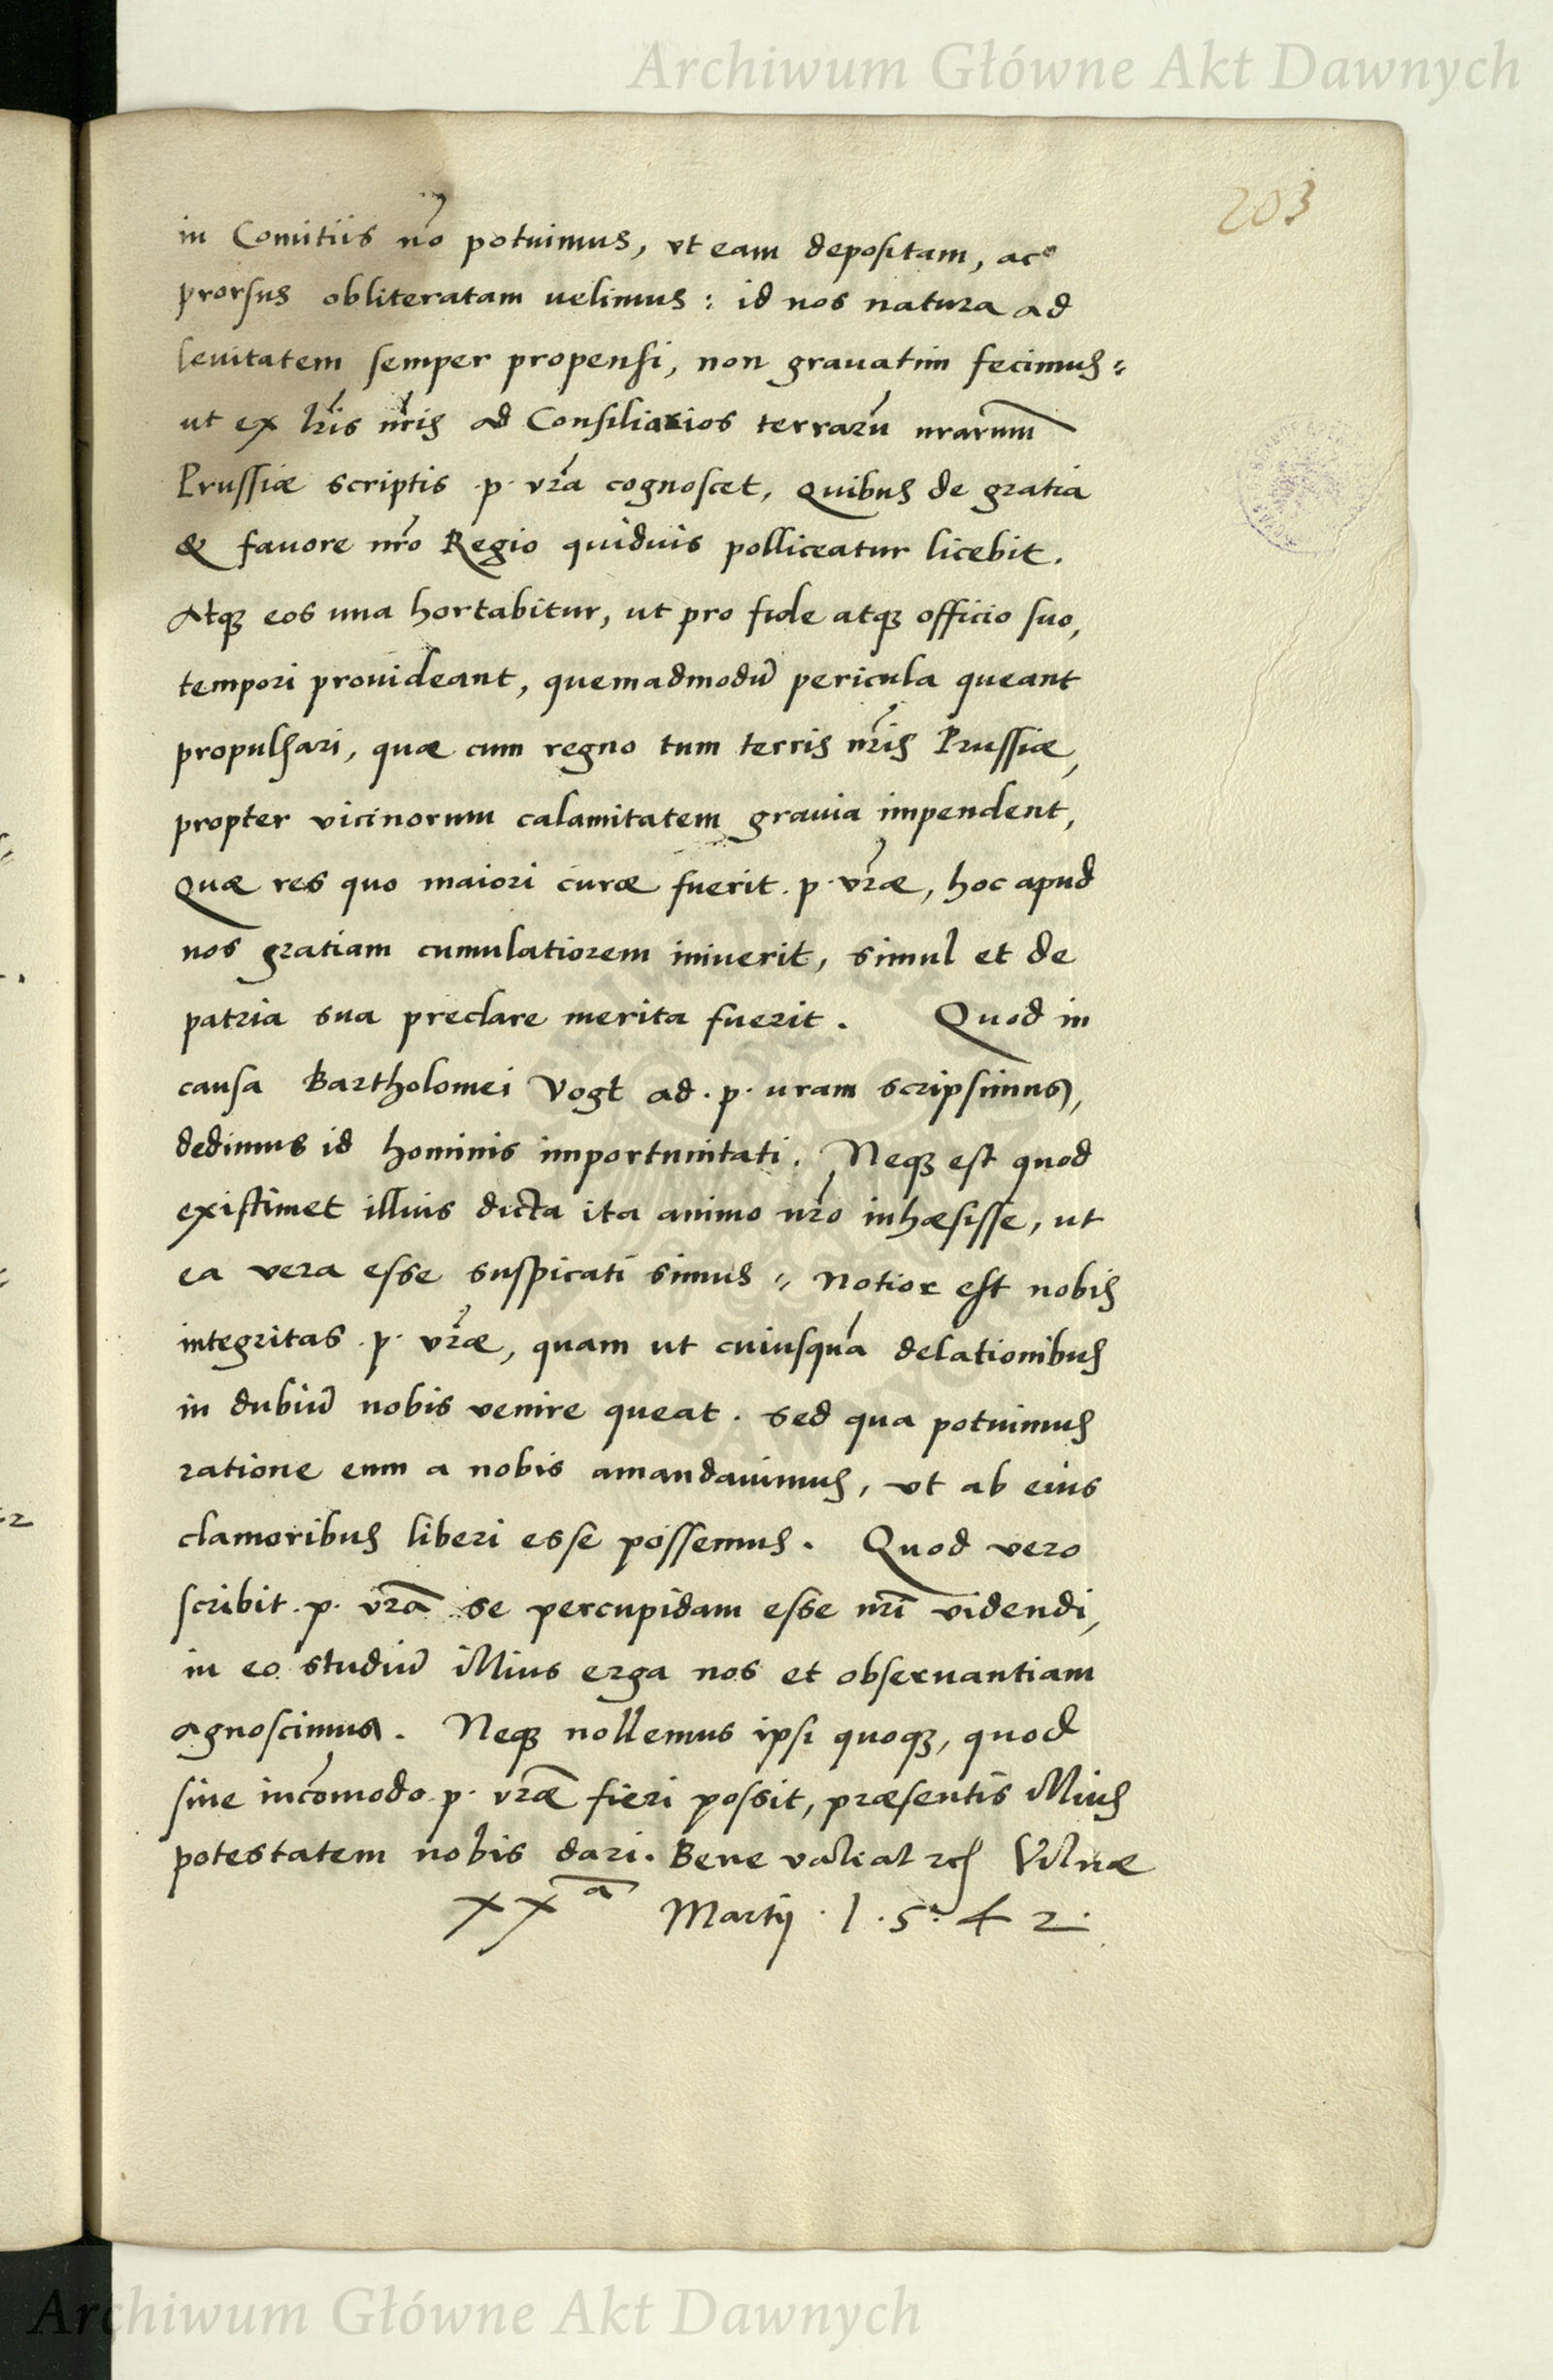 Archiwum Główne Akt Dawnych
203
in Comitiis nr̃o potuimus, vt eam depositam, ac
prorsus obliteratam uelimus: id nos natura ad
leuitatem semper propensi, non grauatim fecimus:
ut ex lr̃is nr̃is ad Consiliarios terrarũ nrarum
Prussiæ scriptis .p. vr̃a cognoscet, Quibus de gratia
& fauore nr̃o Regio quiduis polliceatur licebit.
Atq; eos una hortabitur, ut pro fide atq; officio suo,
tempori prouideant, quemadmodũ pericula queant
propulsari, quæ cum regno tum terris nr̃is Prussiæ,
propter vicinorum calamitatem grauia impendent,
Quæ res quo maiori curæ fuerit .p. vr̃æ, hoc apud
nos gratiam cumulatiorem iniuerit, simul et de
patria sua preclare merita fuerit. Quod in
causa Bartholomei Vogt ad .p. uram scripsimus,
dedimus id hominis importunitati. Neq; est quod
existimet illius dicta ita animo nr̃o inhæsisse, ut
ea vera esse suspicati simus: Notior est nobis
integritas .p. vr̃æ, quam ut cuiusquã delationibus
in dubiũ nobis venire queat. Sed qua potuimus
ratione eum a nobis amandauimus, vt ab eius
clamoribus liberi esse possemus. Quod vero
scribit .p. vr̃a se percupidam esse nr̃i videndi,
in eo studiũ illius erga nos et obseruantiam
agnoscimus. Neq; nollemus ipsi quoq;, quod
sine incõmodo .p. vr̃æ fieri possit, præsentis illius
potestatem nobis dari. Bene valeat Vilnæ
XXa Martij . 1 . 5 . 4 2 .
Archiwum Główne Akt Dawnych